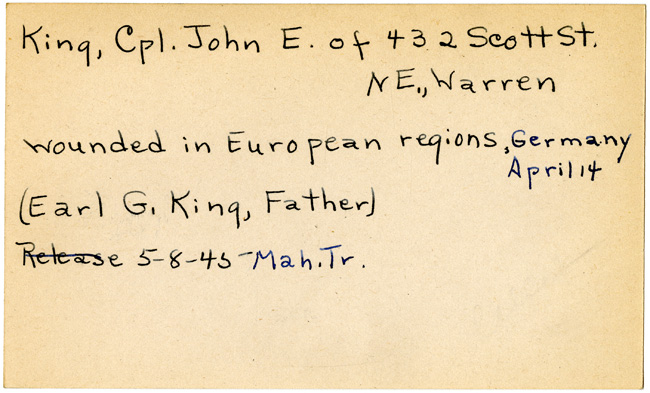 King, Cpl. John E. of 432 Scott St.
NE., Warren
wounded in European regions, Germany
April 14
(Earl G. King, Father)
Release 5-8-45-Mah. Tr.